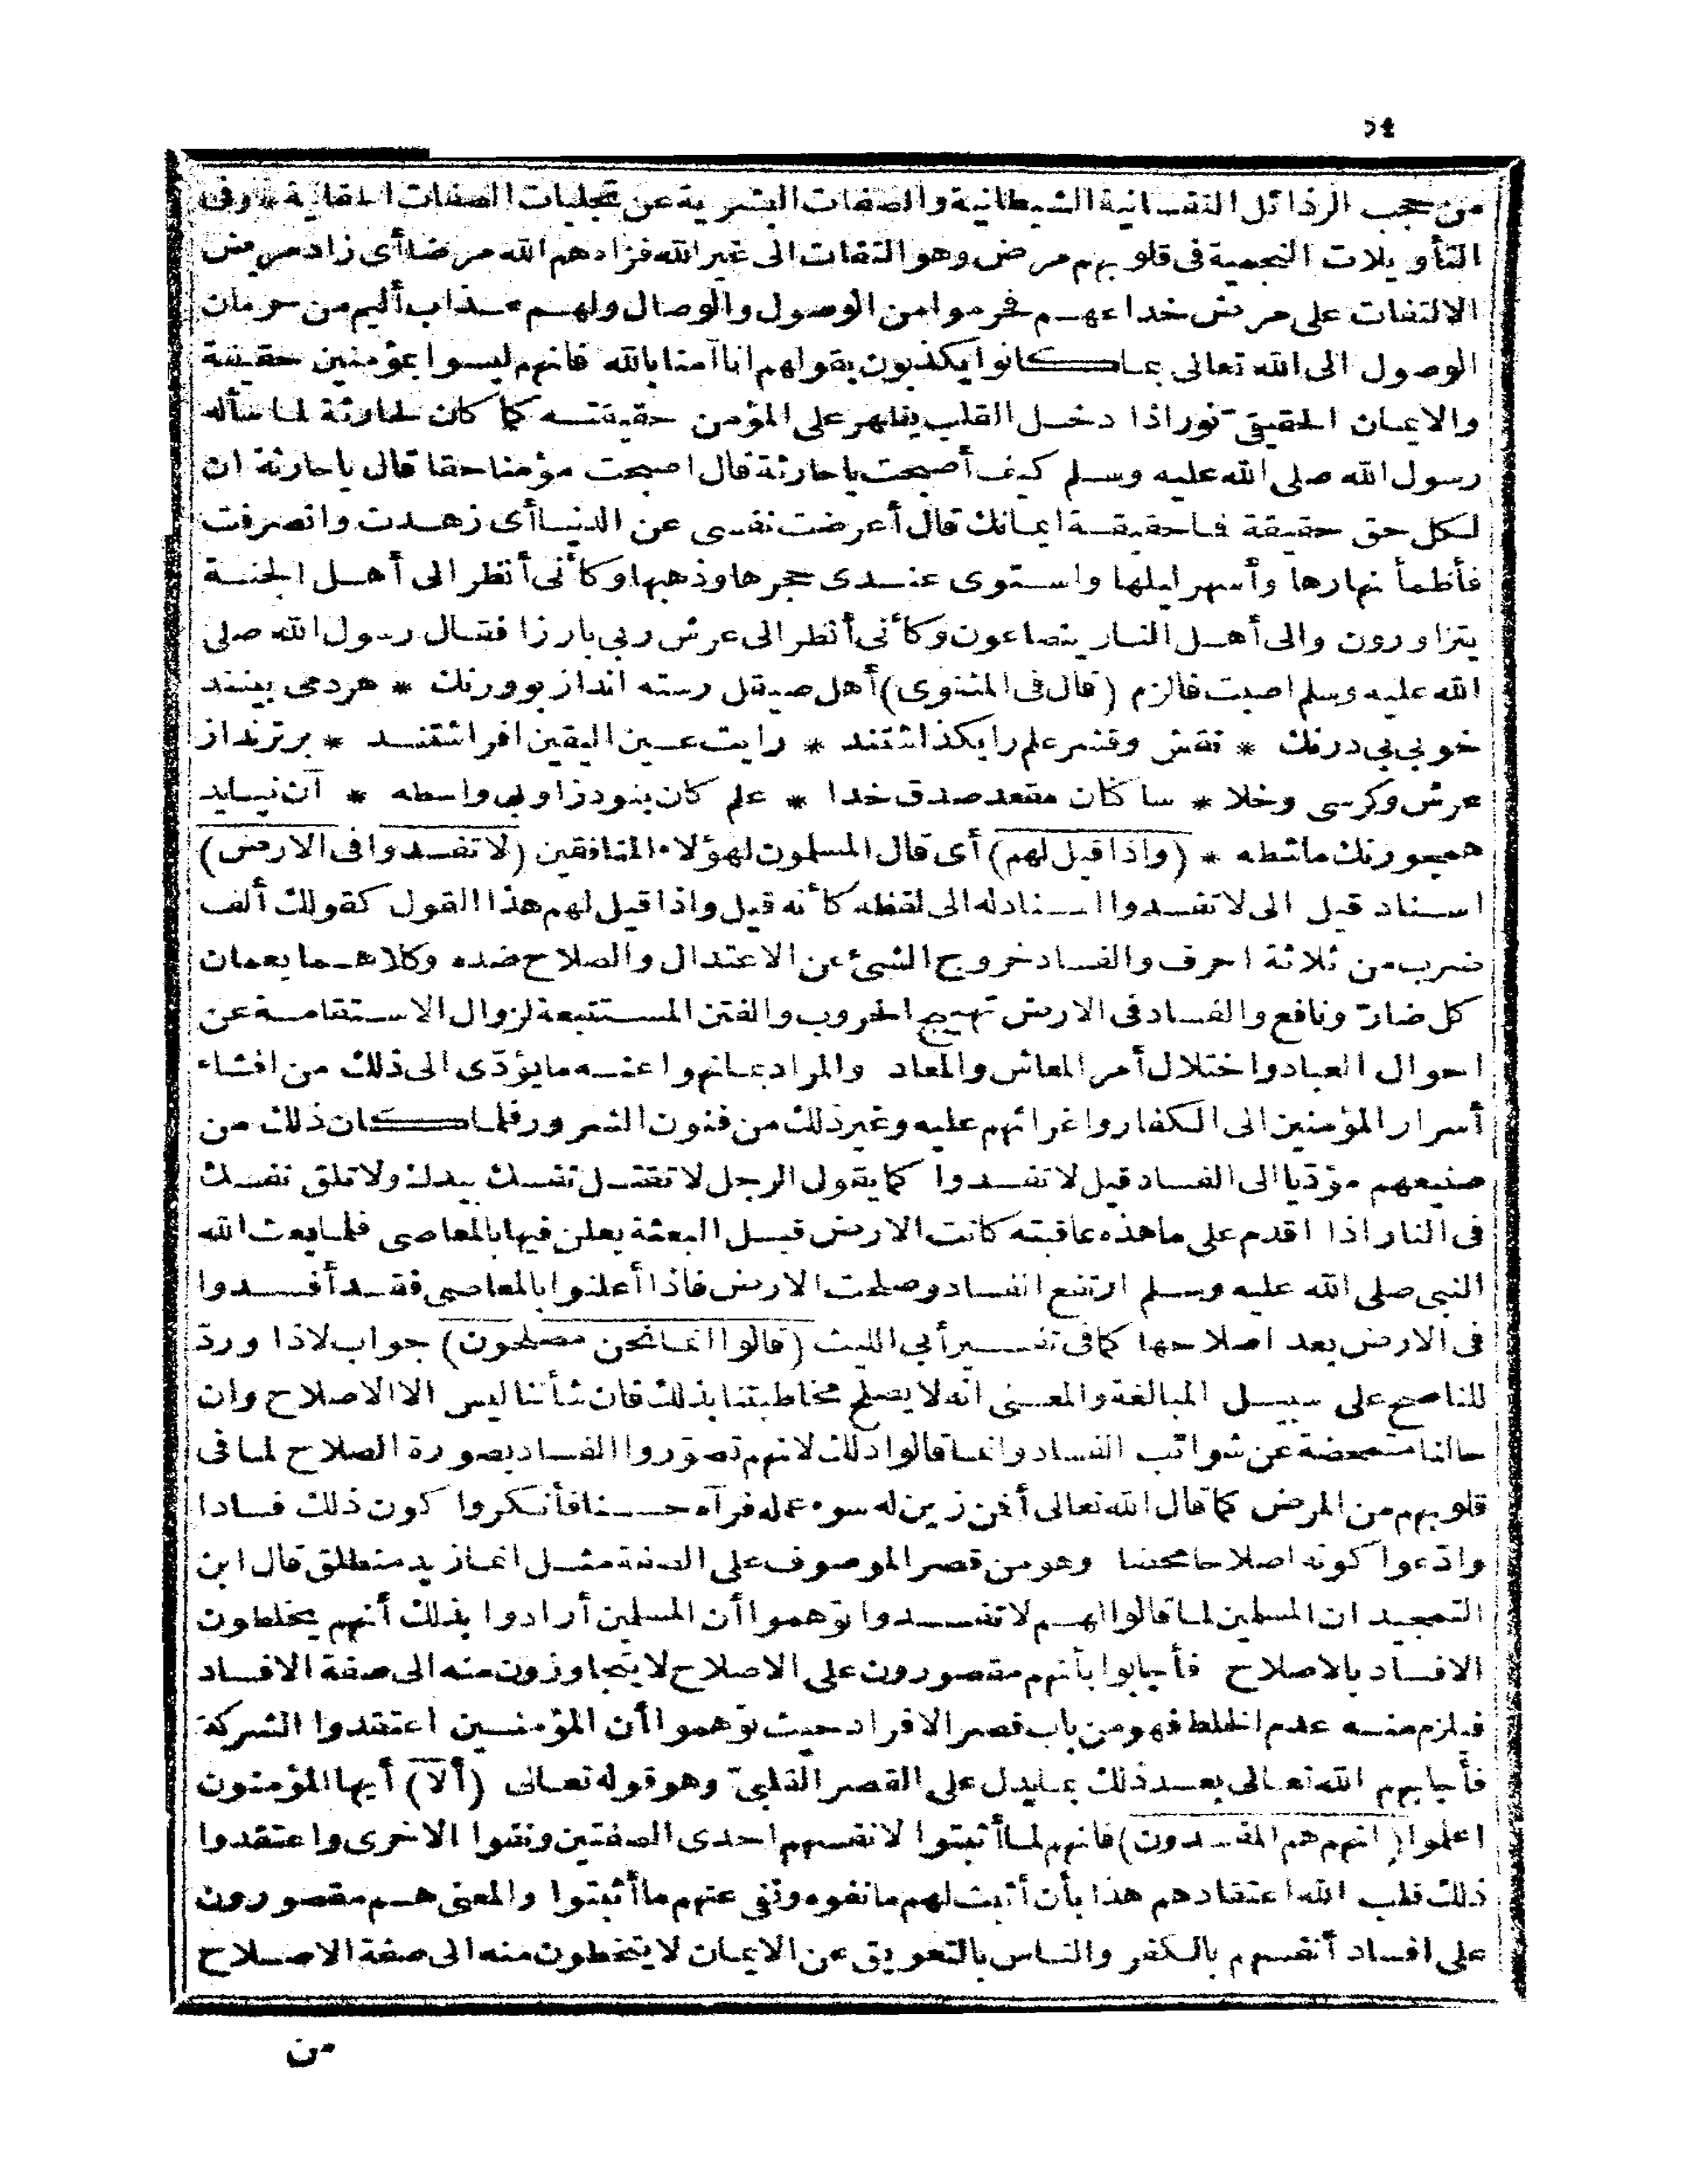 ٥٤
من حجب الرذائل النفسانية الشيطانية والصفات البشرية عن تجليات الصفات الحقانية * وفى
التأويلات النجمية فى قلوبهم مرض وهو التفات الى غير الله فزادهم الله مرضا أى زاد مرض
الالتفات على مرض خداعهم فحرموا من الوصول والوصال ولهم عذاب أليم من حرمان
الوصول الى الله تعالى بما كانوا يكذبون بقولهم انا آمنا بالله فانهم ليسوا بمؤمنين حقيقة
والايمان الحقيقى نور اذا دخل القلب يظهر على المؤمن حقيقته كما كان لحارثة لما سأله
رسول الله صلى الله عليه وسلم كيف أصبحت يا حارثة قال اصبحت مؤمنا حقا قال يا حارثة ان
لكل حق حقيقة فما حقيقة ايمانك قال أعرضت نفسى عن الدنيا أى زهدت وانصرفت
فأظمأ نهارها وأسهر ليلها واستوى عندى حجرها وذهبها وكأنى أنظر الى أهل الجنة
يتزاورون والى أهل النار يتصاعون وكأنى أنظر الى عرش ربى بارزا فقال رسول الله صلى
الله عليه وسلم اصبت فالزم (قال فى المثنوى) أهل صيقل رسته انداز بوورنك * هردمى بينند
خوبى بى درنك * نقش وقشر علم را بكذاشتند * رايت عين اليقين افراشتند * برترنداز
عرش وكرسى وخلا * ساكنان مقعد صدق خدا * علم كان بنود زاو بى واسطه * آن نپايد
همچورنك ماشطه * (واذا قيل لهم) أى قال المسلمون لهؤلاء المنافقين (لا تفسدوا فى الارض)
اسناد قيل الى لا تفسدوا اسناد له الى لفظه كأنه قيل واذا قيل لهم هذا القول كقولك ألف
ضرب من ثلاثة احرف والفساد خروج الشئ عن الاعتدال والصلاح ضده وكلاهما يعمان
كل ضارّ ونافع والفساد فى الارض تهييج الحروب والفتن المستتبعة لزوال الاستقامة عن
احوال العباد واختلال أمر المعاش والمعاد والمراد بما نهوا عنه ما يؤدّى الى ذلك من افشاء
أسرار المؤمنين الى الكفار واغرائهم عليه وغير ذلك من فنون الشرور فلما كان ذلك من
صنيعهم مؤدّيا الى الفساد قيل لا تفسدوا كما يقول الرجل لا تقتل نفسك بيدك ولا تلق نفسك
فى النار اذا اقدم على ما هذه عاقبته كانت الارض قبل البعثة يعلن فيها بالمعاصى فلما بعث الله
النبى صلى الله عليه وسلم ارتفع الفساد وصلحت الارض فاذا أعلنوا بالمعاصى فقد أفسدوا
فى الارض بعد اصلاحها كما فى تفسير أبى الليث (قالوا انما نحن مصلحون) جواب لاذا وردّ
للناصح على سبيل المبالغة والمعنى انه لا يصلح مخاطبتنا بذلك فان شأننا ليس الا الاصلاح وان
حالنا متمحضة عن شوائب الفساد وانما قالوا ذلك لانهم تصوّروا الفساد بصورة الصلاح لما فى
قلوبهم من المرض كما قال الله تعالى أفمن زين له سوء عمله فرآه حسنا فأنكروا كون ذلك فسادا
وادّعوا كونه اصلاحا محضا وهو من قصر الموصوف على الصفة مثل انما زيد منطلق قال ابن
التمجيد ان المسلمين لما قالوا لهم لا تفسدوا توهموا أن المسلمين أرادوا بذلك أنهم يخلطون
الافساد بالاصلاح فأجابوا بأنهم مقصورون على الاصلاح لا يتجاوزون منه الى صفة الافساد
فيلزم منه عدم الخلط فهو من باب قصر الافراد حيث توهموا أن المؤمنين اعتقدوا الشركة
فأجابهم الله تعالى بعد ذلك بما يدل على القصر القلبىّ وهو قوله تعالى (ألا) أيها المؤمنون
اعلموا (انهم هم المفسدون) فانهم لما أثبتوا لانفسهم احدى الصفتين ونفوا الاخرى واعتقدوا
ذلك قلب الله اعتقادهم هذا بأن أثبت لهم ما نفوه ونفى عنهم ما أثبتوا والمعنى هم مقصورون
على افساد أنفسهم بالكفر والناس بالتعويق عن الايمان لا يتخطون منه الى صفة الاصلاح
من